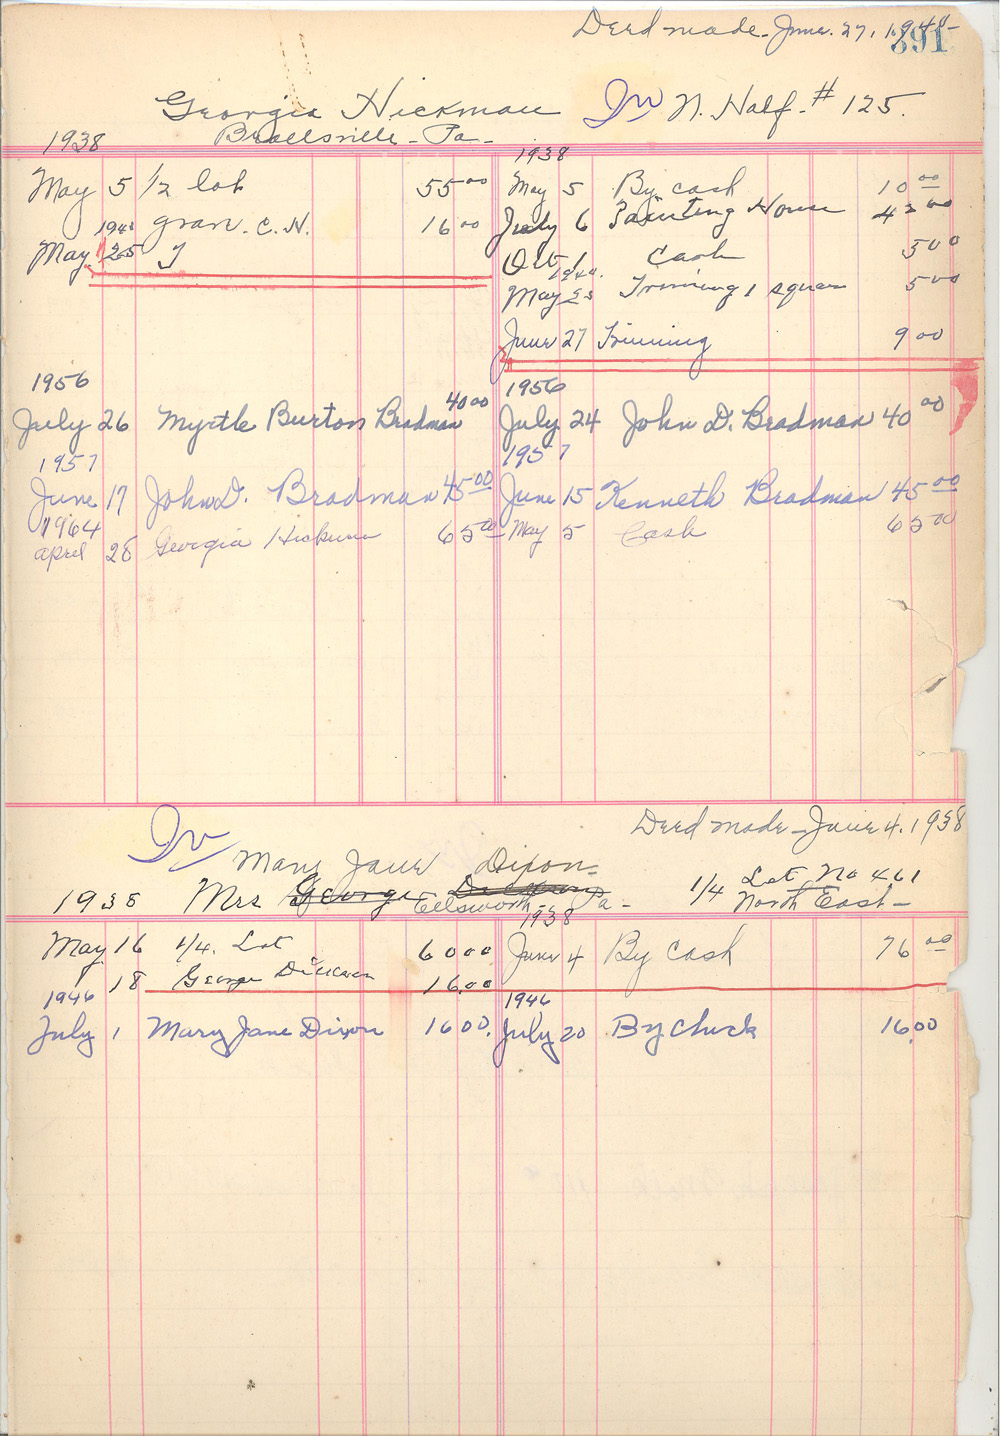 Deed made - June. 27, 1940-
391
Georgia Hickman In N. Half - # 125.
Pa -
1938
1938
May 5 1/2 lot 55 00 May 5 By cash 10 00
1940 gran. C. H. 16 00 July 6 Painting House 42 00
May 25 Oct 1 Cash 5 00
1940.
May 23 Trimming 1 square 5 00
June 27 Trimming 9 00
1956 1956
July 26 Myrtle Burton Bradman 40 00 July 24 John D. Bradman 40 00
1957 1957
June 17 John D. Bradman 45 00 June 15 Kenneth Bradman 45 00
1964
April 28 Georgia Hickman 65 00 May 5 Cash 65 00
In Deed made - June 4. 1938
Mary Jane Dixon
1938 Mrs George Dickson 1/4 Lot No 461
Ellsworth - Pa - North East -
1938
May 16 1/4. Lot 60 00 June 4 By cash 76 00
18 George Dickson 16.00
1946 1946
July 1 Mary Jane Dixon 16 00. July 20 By Check 16.00